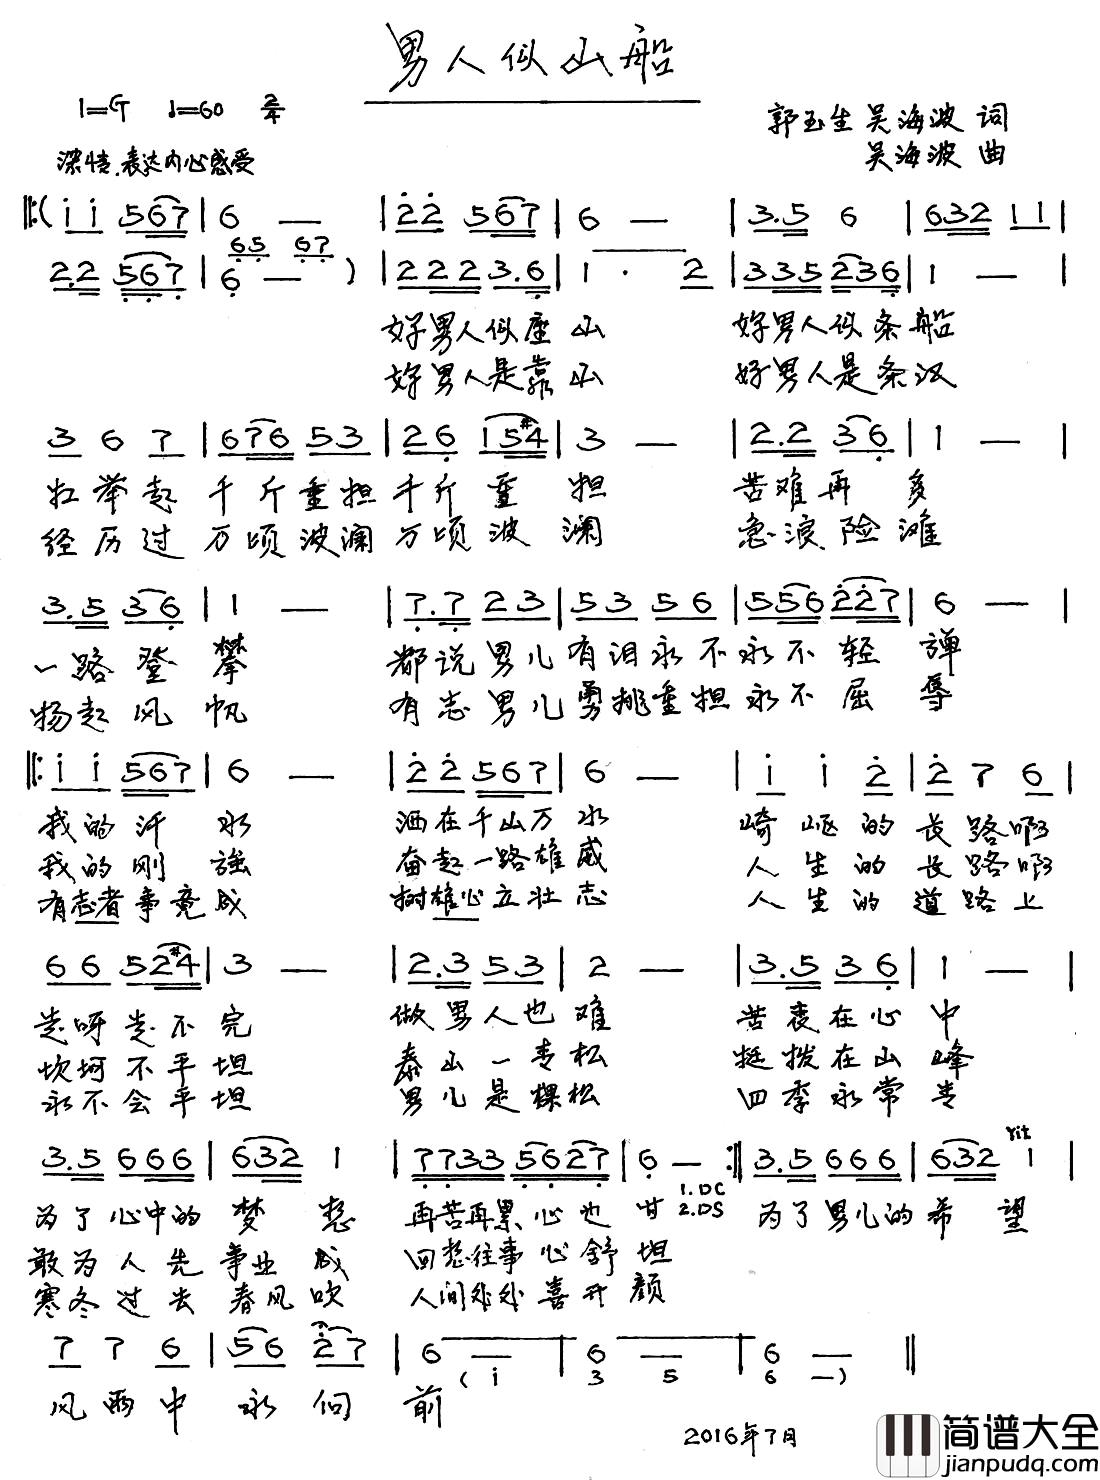 男人似山船
1=G ♩=60 2/4
郭玉生 吴海波 词
深情.表达内心感受
吴海波 曲
‖:( i i 5 6 7 | 6 — | 2 2 5 6 7 | 6 — | 3.5 6 | 6 3 2 1 1 |
6 5 6 7
2 2 5 6 7 | 6 — ) | 2 2 2 3.6 | 1 . 2 | 3 3 5 2 3 6 | 1 — |
好男人似座山 好男人似条船
好男人是靠山 好男人是条汉
3 6 7 | 6 7 6 5 3 | 2 6 1 5 #4 | 3 — | 2.2 3 6 | 1 — |
扛举起千斤重担千斤重担 苦难再多
经历过万顷波澜万顷波澜 急浪险滩
3.5 3 6 | 1 — | 7.7 2 3 | 5 3 5 6 | 5 5 6 2 2 7 | 6 — |
一路登攀 都说男儿有泪永不永不轻弹
扬起风帆 有志男儿勇挑重担永不屈辱
‖: i i 5 6 7 | 6 — | 2 2 5 6 7 | 6 — | i i 2 | 2 7 6 |
我的汗水 洒在千山万水 崎岖的长路啊
我的刚强 奋起一路雄威 人生的长路啊
有志者事竟成 树雄心立壮志 人生的道路上
6 6 5 2 #4 | 3 — | 2.3 5.3 | 2 — | 3.5 3 6 | 1 — |
走呀走不完 做男人也难 苦衷在心中
坎坷不平坦 泰山一青松 挺拨在山峰
永不会平坦 男儿是棵松 四季永常青
rit
3.5 6 6 6 | 6 3 2 1 | 7 7 3 3 5 6 2 7 | 6 — :‖ 3.5 6 6 6 | 6 3 2 1 |
1.DC
2.DS
为了心中的梦想 再苦再累心也甘 为了男儿的希望
敢为人先事业成 回想往事心舒坦
寒冬过去春风吹 人间处处喜开颜
7 7 6 | 5 6 2 7 | 6 — | 6 — | 6 — ‖
( i 3 5 6 —)
风雨中永向前
2016年7月
简谱大全
jianpudq.com